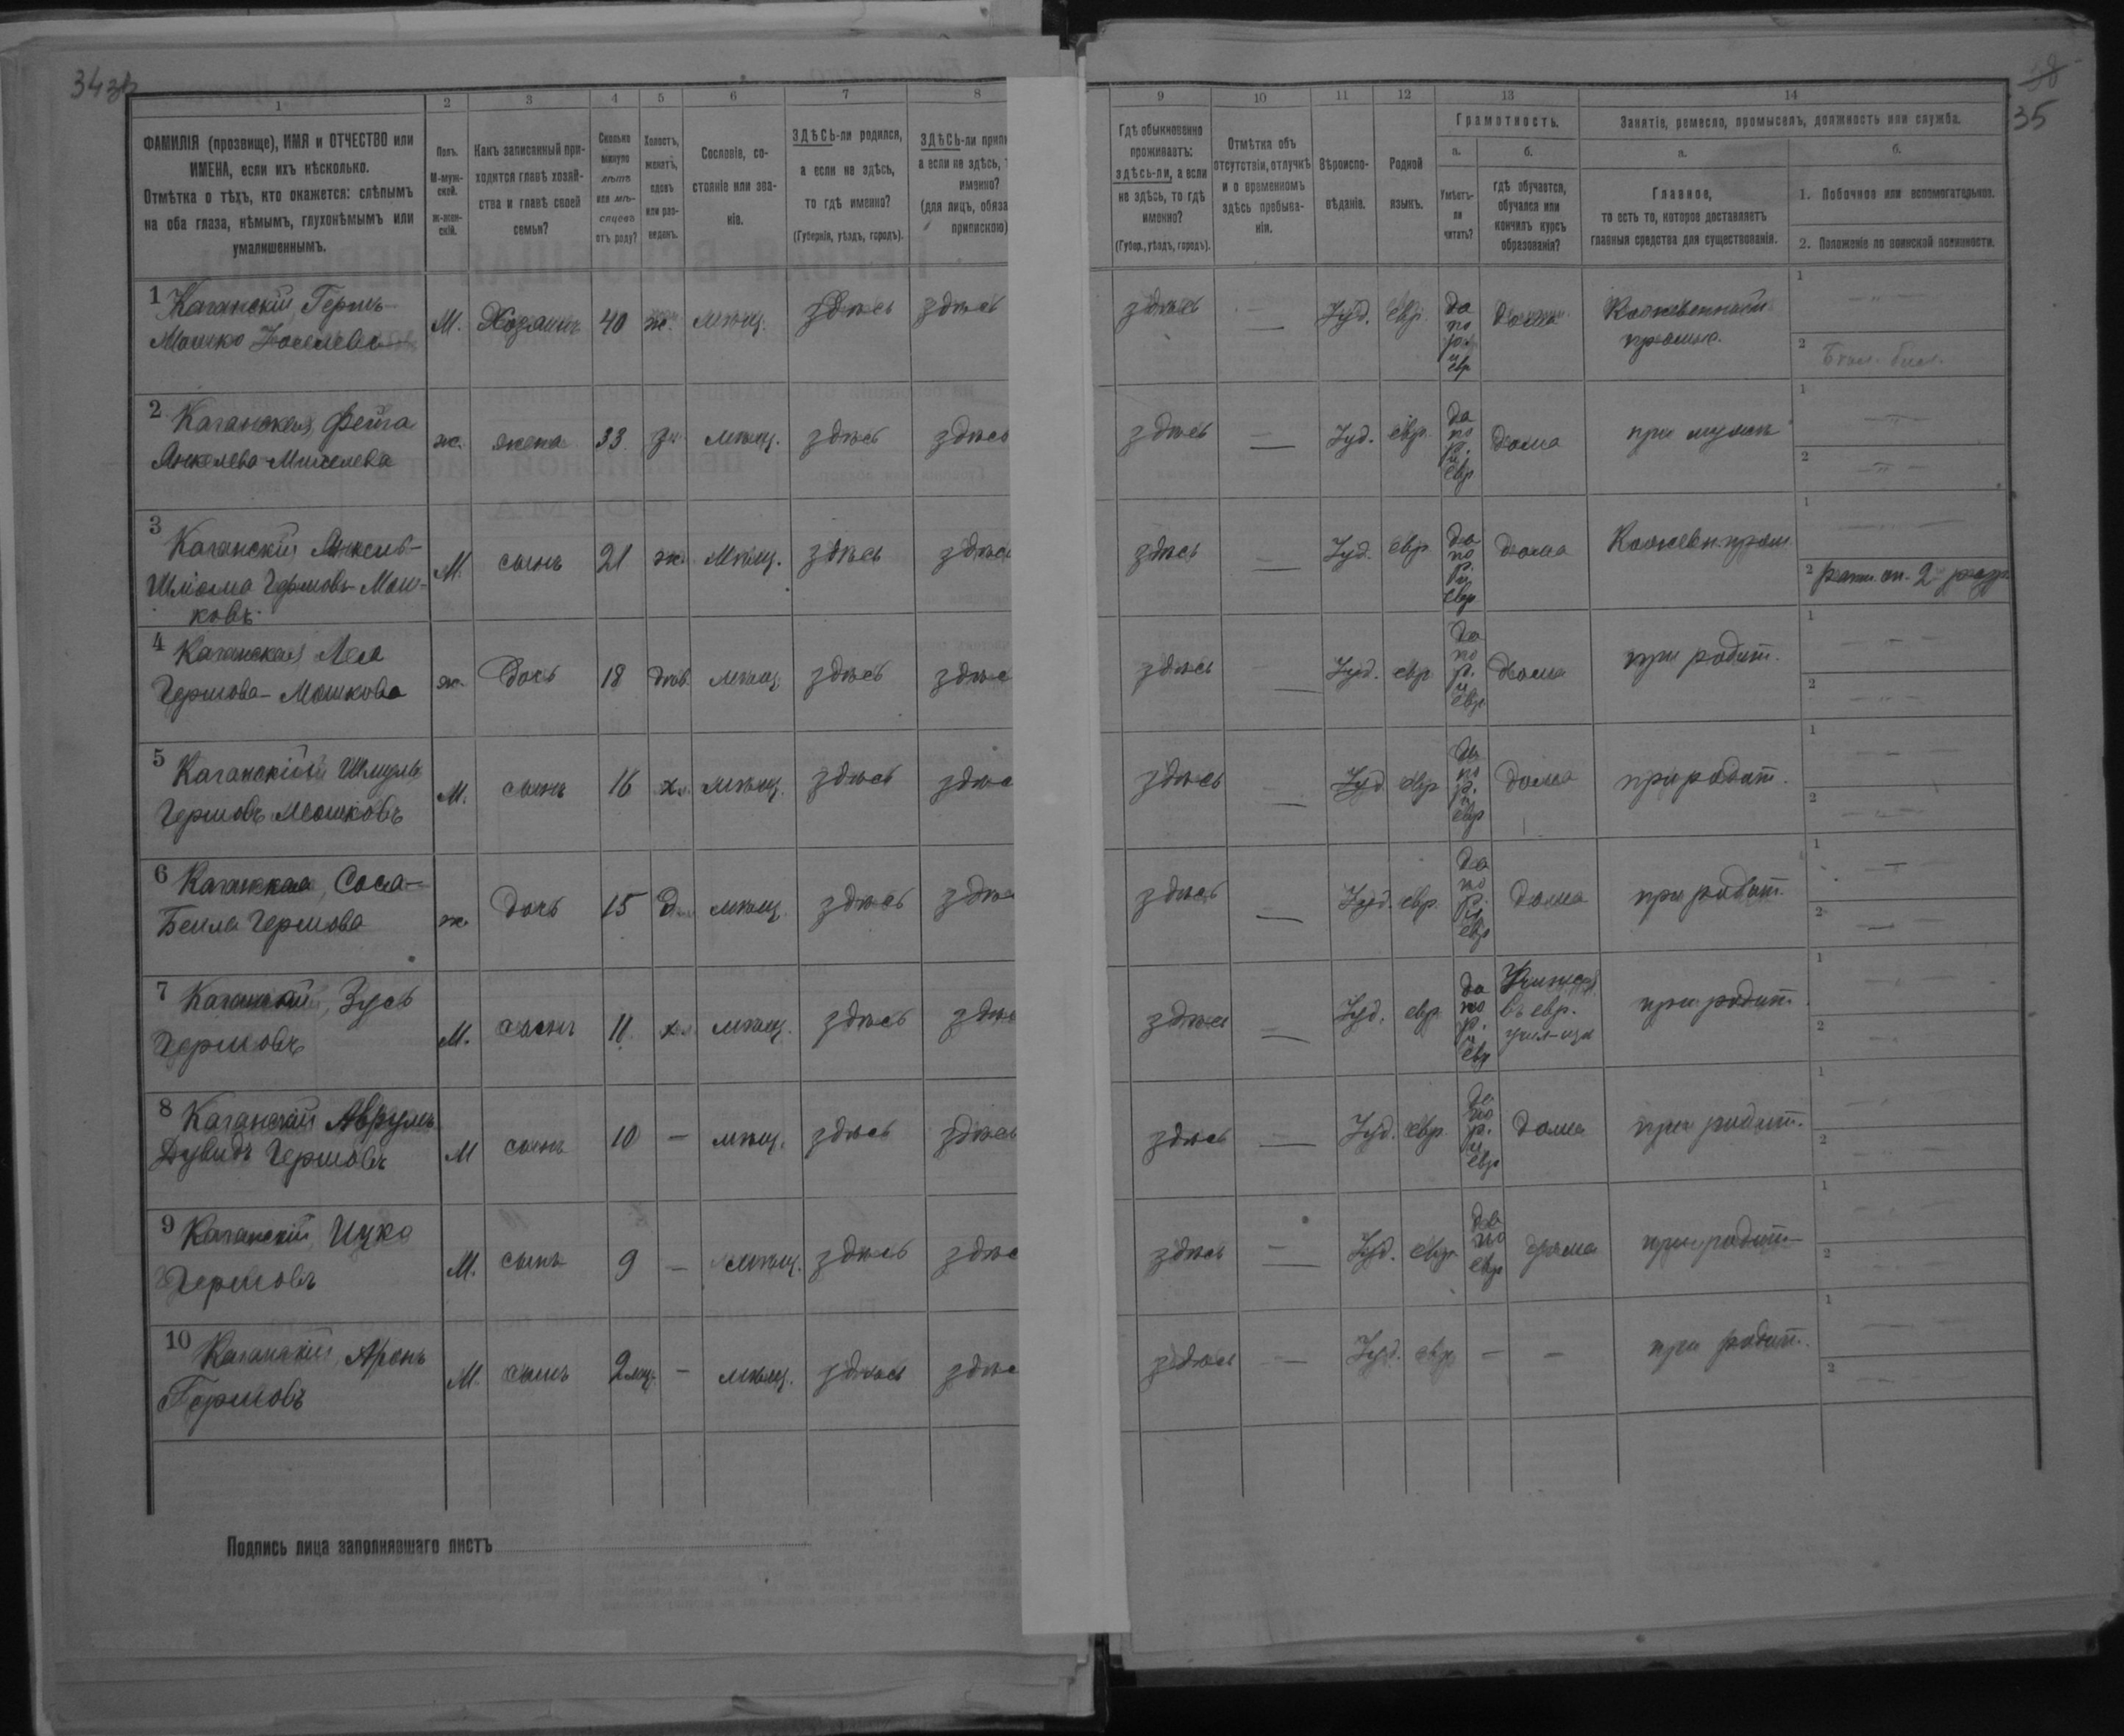 34 об
38
35
1 2 3 4 5 6 7 8 9 10 11 12 13 14
ФАМИЛІЯ (прозвище), ИМЯ и ОТЧЕСТВО или
ИМЕНА, если ихъ нѣсколько.
Отмѣтка о тѣхъ, кто окажется: слѣпымъ
на оба глаза, нѣмымъ, глухонѣмымъ или
умалишеннымъ.
Полъ.
М-муж-
ской.
ж-жен-
скій.
Какъ записанный при-
ходится главѣ хозяй-
ства и главѣ своей
семьи?
Сколько
минуло
лѣтъ
или мѣ-
сяцевъ
отъ роду?
Холостъ,
женатъ,
вдовъ
или раз-
веденъ.
Сословіе, со-
стояніе или зва-
ніе.
ЗДѢСЬ-ли родился,
а если не здѣсь,
то гдѣ именно?
(Губернія, уѣздъ, городъ).
ЗДѢСЬ-ли припи
а если не здѣсь, т
именно?
(для лицъ, обяза
припискою)
Гдѣ обыкновенно
проживаетъ:
здѣсь-ли, а если
не здѣсь, то гдѣ
именно?
(Губер., уѣздъ, городъ).
Отмѣтка объ
отсутствіи, отлучкѣ
и о временномъ
здѣсь пребыва-
ніи.
Вѣроиспо-
вѣданіе.
Родной
языкъ.
Грамотность.
а.
Умѣетъ-
ли
читать?
б.
гдѣ обучается,
обучался или
кончилъ курсъ
образованія?
Занятіе, ремесло, промыселъ, должность или служба.
а.
Главное,
то есть то, которое доставляетъ
главныя средства для существованія.
б.
1. Побочное или вспомогательное.
2. Положеніе по воинской повинности.
1 Каганскій Гершъ
Мошко
М. Хозяинъ 40 ж. мѣщ. здѣсь здѣсь здѣсь — Іуд. евр. да по р. и евр дома Кожевенный
промыс.
1
2
2 Каганская, Фейга
Анкелева-
ж. жена 33 мѣщ. здѣсь здѣсь здѣсь — Іуд. евр. да по р. и евр дома при мужѣ
1 —"—
2 —"—
3 Каганскій Анкель-
Шлома Гершовъ-Мош-
ковъ
М. сынъ 21 ж. Мѣщ. здѣсь здѣсь здѣсь — Іуд. евр да по р. и евр дома Кожевен. пром
1
2 ратн. оп. 2 разр
4 Каганская Лея
Гершова-Мошкова
ж. дочь 18 дѣв. мѣщ. здѣсь здѣс здѣсь — Іуд. евр да по р. и евр дома при родит.
1 —
2 —"—
5 Каганскій Шмуль
Гершовъ Мошковъ
М. сынъ 16 х. мѣщ. здѣсь здѣс здѣсь — Іуд евр да по р. и евр дома при родит.
1 —
2 —"—
6 Каганская, Сося-
Бейла Гершова
ж дочь 15 д. мѣщ. здѣсь здѣ здѣсь — Іуд. евр. да по р. и евр дома при родит.
1 —
2 —
7 Каганскій, Зусь
Гершовъ
М. сынъ 11. х. мѣщ. здѣсь здѣс здѣсь — Іуд. евр. да по р. и евр Учится
въ евр.
учил-щѣ при родит.
1 —
2 —
8 Каганскій Аврумъ
Дувидъ Гершовъ
М сынъ 10 — мѣщ. здѣсь здѣсь здѣсь — Іуд. евр. да по р. и евр дома при родит.
1 —
2 —
9 Каганскій Ицко
Гершовъ
М. сынъ 9 — мѣщ. здѣсь здѣс здѣсь — Іуд. евр. да по евр дома при родит
1 —
2 —
10 Каганскій, Аронъ
Гершовъ
М. сынъ 2 мц. — мѣщ. здѣсь здѣс здѣсь — Іуд. евр — — при родит.
1 —
2 —
Подпись лица заполнявшаго листъ